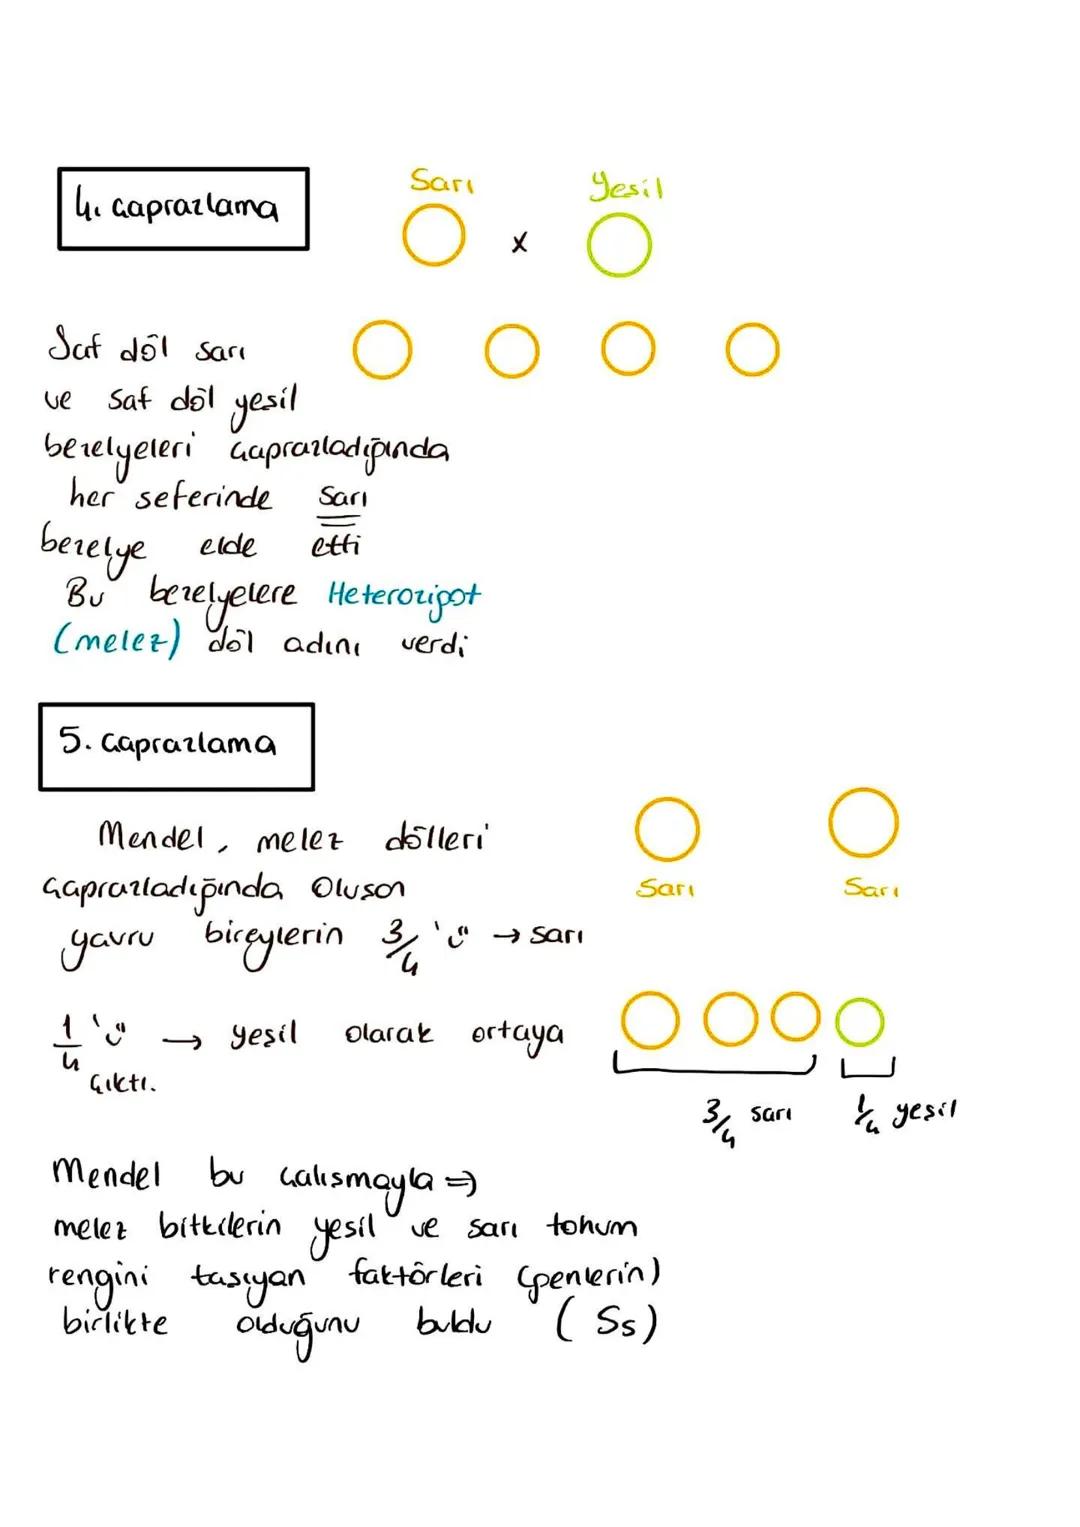 4. Çaprazlama
Sarı
Yesil
x
Saf döl sarı
ve saf döl yesil
bezelyeleri çaprazladığında
her seferinde sarı
bezelye elde etti
Bu bezelyelere Heterozigot
(melez) döl adını verdi
5. Çaprazlama
Mendel, melez dölleri
çaprazladığında Oluşan
yavru bireylerin 3/4 'ü → sarı
1/4 'ü → yeşil olarak ortaya
çıktı.
Sarı
Sarı
3/4 sarı
1/4 yeşil
Mendel bu çalısmayla ⇒
melez bitkilerin yesil ve sarı tohum
rengini tasıyan faktörleri (genlerin)
birlikte olduğunu buldu (Ss)